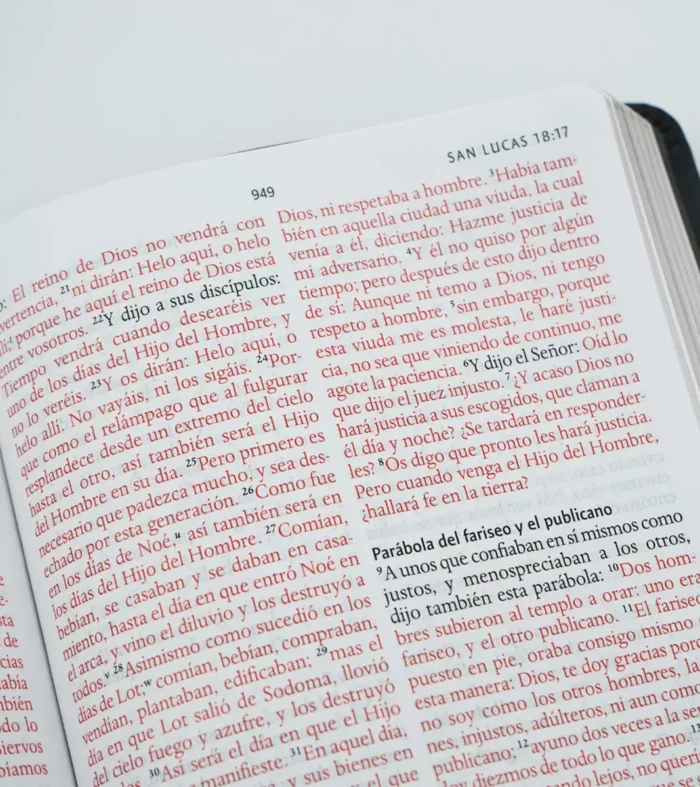 949
SAN LUCAS 18:17
El reino de Dios no vendrá con
²¹ni dirán: Helo aquí, o helo
porque he aquí el reino de Dios está
entre vosotros. ²²Y dijo a sus discípulos:
Tiempo vendrá cuando desearéis ver
uno de los días del Hijo del Hombre, y
no lo veréis. ²³Y os dirán: Helo aquí, o
helo allí. No vayáis, ni los sigáis. ²⁴Por-
que como el relámpago que al fulgurar
resplandece desde un extremo del cielo
hasta el otro, así también será el Hijo
del Hombre en su día. ²⁵Pero primero es
necesario que padezca mucho, y sea des-
echado por esta generación. ²⁶Como fue
en los días de Noé,ᵘ así también será en
los días del Hijo del Hombre. ²⁷Comían,
bebían, se casaban y se daban en casa-
miento, hasta el día en que entró Noé en
el arca, y vino el diluvio y los destruyó a
todos.ᵛ ²⁸Asimismo como sucedió en los
días de Lot;ʷ comían, bebían, compraban,
vendían, plantaban, edificaban; ²⁹mas el
día en que Lot salió de Sodoma, llovió
del cielo fuego y azufre, y los destruyó
³⁰Así será el día en que el Hijo
manifieste. ³¹En aquel día,
y sus bienes en
y el que
Dios, ni respetaba a hombre. ³Había tam-
bién en aquella ciudad una viuda, la cual
venía a él, diciendo: Hazme justicia de
mi adversario. ⁴Y él no quiso por algún
tiempo; pero después de esto dijo dentro
de sí: Aunque ni temo a Dios, ni tengo
respeto a hombre, ⁵sin embargo, porque
esta viuda me es molesta, le haré justi-
cia, no sea que viniendo de continuo, me
agote la paciencia. ⁶Y dijo el Señor: Oíd lo
que dijo el juez injusto. ⁷¿Y acaso Dios no
hará justicia a sus escogidos, que claman a
él día y noche? ¿Se tardará en responder-
les? ⁸Os digo que pronto les hará justicia.
Pero cuando venga el Hijo del Hombre,
¿hallará fe en la tierra?
Parábola del fariseo y el publicano
⁹A unos que confiaban en sí mismos como
justos, y menospreciaban a los otros,
dijo también esta parábola: ¹⁰Dos hom-
bres subieron al templo a orar: uno era
fariseo, y el otro publicano. ¹¹El fariseo
puesto en pie, oraba consigo mismo
esta manera: Dios, te doy gracias por
no soy como los otros hombres,
nes, injustos, adúlteros, ni aun com
publicano; ¹²ayuno dos veces a la se
doy diezmos de todo lo que gano.
lejos, no queri